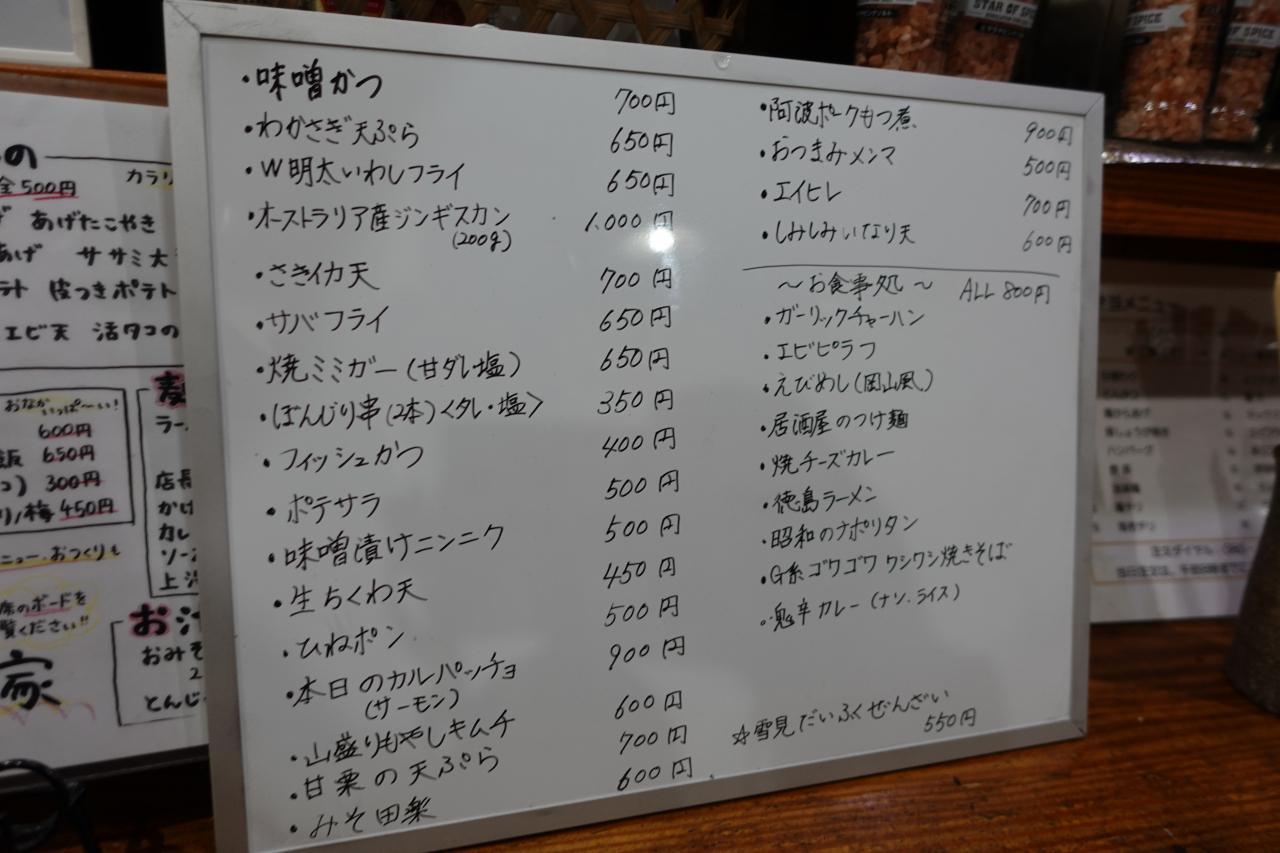 ・味噌かつ 700円
・わかさぎ天ぷら 650円
・W明太いわしフライ 650円
・オーストラリア産ジンギスカン 1.000円
(200g)
・さきイカ天 700円
・サバフライ 650円
・焼ミミガー(甘ダレ・塩) 650円
・ぼんじり串(2本)<タレ・塩> 350円
・フィッシュかつ 400円
・ポテサラ 500円
・味噌漬けニンニク 500円
・生ちくわ天 450円
・ひねポン 500円
・本日のカルパッチョ 900円
(サーモン)
・山盛りもやしキムチ 600円
・甘栗の天ぷら 700円
・みそ田楽 600円
・阿波ポークもつ煮 900円
・おつまみメンマ 500円
・エイヒレ 700円
・しみしみいなり天 600円
〜お食事処〜 ALL 800円
・ガーリックチャーハン
・エビピラフ
・えびめし(岡山風)
・居酒屋のつけ麺
・焼チーズカレー
・徳島ラーメン
・昭和のナポリタン
・G系ゴワゴワワシワシ焼きそば
・鬼辛カレー(ナン.ライス)
☆雪見だいふくぜんざい
550円
の
500円 カラリ
あげたこやき
あげ ササミ大
皮つきポテト
エビ天 活タコの
おなかいっぱ〜い!
600円
飯 650円
300円
/梅 450円
ニュー・おつくりも
のボードを
覧ください!!
家
ラー
店長
かけ
カレ
ソー
上
お汁
おみそ
とんじ
STAR OF SPICE
STAR OF SPICE
ハンバーグ